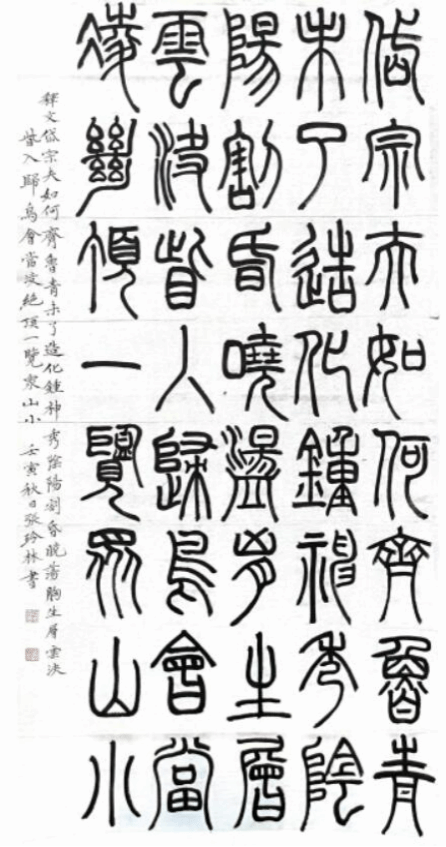 岱宗夫如何齊魯青
未了造化鍾神秀陰
陽割昏曉盪胸生層
雲決眥入歸鳥會當
凌絕頂一覽眾山小
釋文岱宗夫如何齊魯青未了造化鍾神秀陰陽割昏曉蕩胸生層雲決
眥入歸鳥會當凌絕頂一覽衆山小 壬寅秋日張玲林書